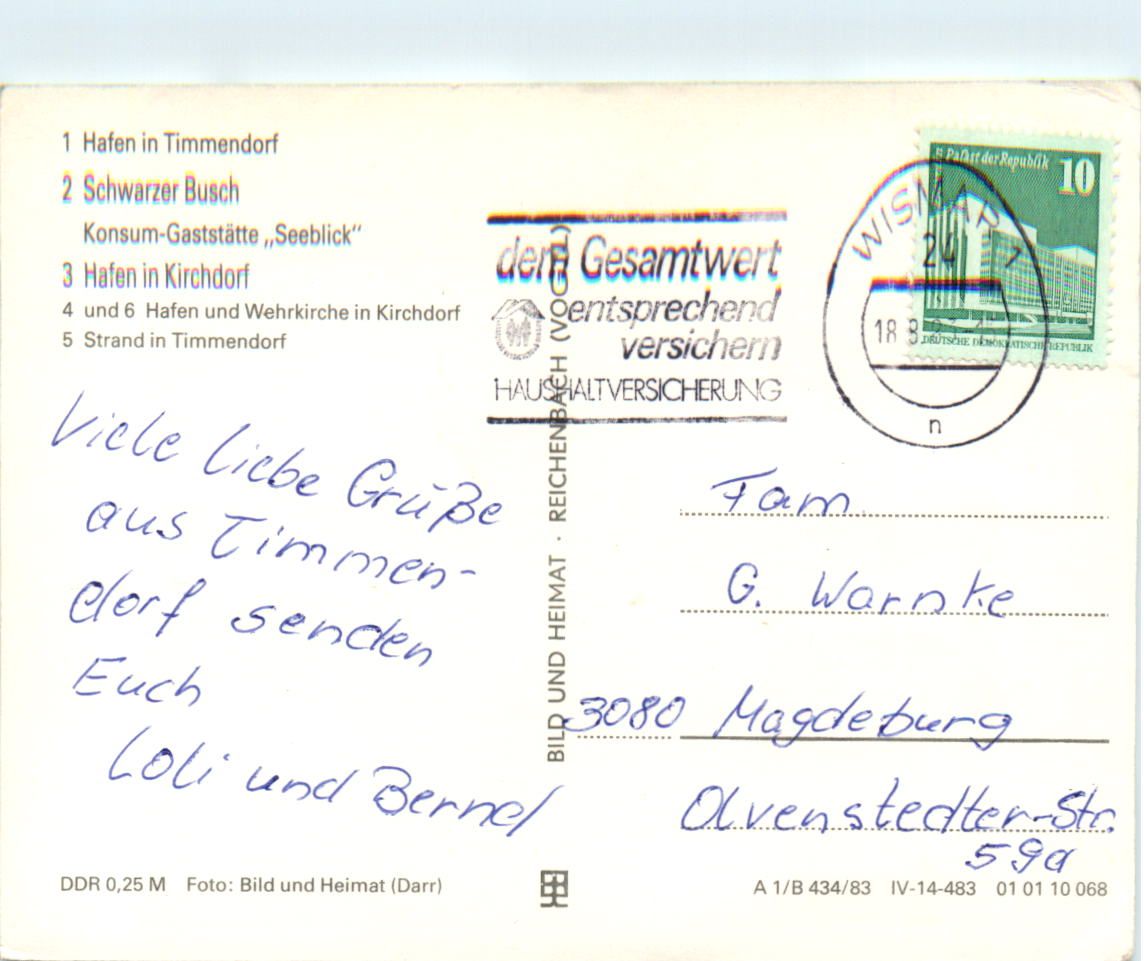 1 Hafen in Timmendorf
2 Schwarzer Busch
Konsum-Gaststätte „Seeblick“
3 Hafen in Kirchdorf
4 und 6 Hafen und Wehrkirche in Kirchdorf
5 Strand in Timmendorf
Viele liebe Grüße
aus Timmen-
dorf senden
Euch
Loli und Bernd
DDR 0,25 M Foto: Bild und Heimat (Darr)
dem Gesamtwert
entsprechend
versichern
HAUSHALTVERSICHERUNG
BILD UND HEIMAT · REICHENBACH (VOGTL)
WISMAR 1
24
18.8.
n
Palast der Republik 10
DEUTSCHE DEMOKRATISCHE REPUBLIK
Fam.
G. Warnke
3080 Magdeburg
Olvenstedter-Str.
59a
A 1/B 434/83 IV-14-483 01 01 10 068